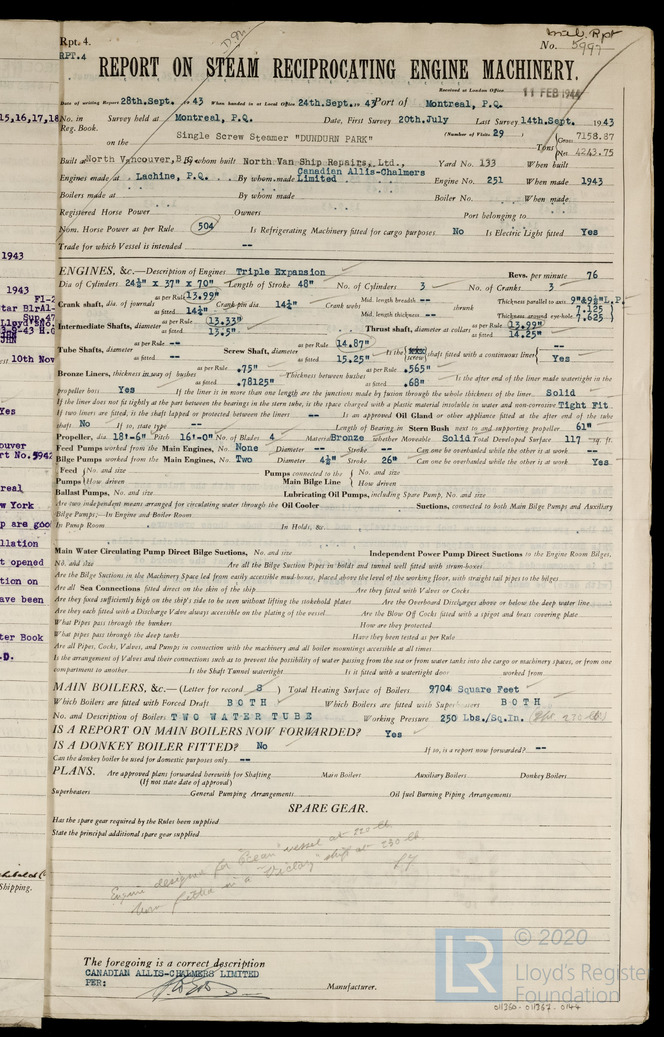 Rpt. 4.
RPT.4
No. 5997
REPORT ON STEAM RECIPROCATING ENGINE MACHINERY.
Received at London Office 11 FEB 1944
Date of writing Report 28th.Sept. 1943 When handed in at Local Office 24th.Sept. 1943 Port of Montreal, P.Q.
No. in Survey held at Montreal, P.Q. Date, First Survey 20th.July Last Survey 14th.Sept. 1943
Reg. Book. (Number of Visits 29 )
on the Single Screw Steamer "DUNDURN PARK" Tons Gross 7158.87
Net 4243.75
Built at North Vancouver, B.C. By whom built North Van Ship Repairs, Ltd., Yard No. 133 When built
Engines made at Lachine, P.Q. By whom made Canadian Allis-Chalmers Limited Engine No. 251 When made 1943
Boilers made at By whom made Boiler No. When made
Registered Horse Power Owners Port belonging to
Nom. Horse Power as per Rule 504 Is Refrigerating Machinery fitted for cargo purposes No Is Electric Light fitted Yes
Trade for which Vessel is intended --
ENGINES, &c.—Description of Engines Triple Expansion Revs. per minute 76
Dia of Cylinders 24½" x 37" x 70" Length of Stroke 48" No. of Cylinders 3 No. of Cranks 3
Crank shaft, dia. of journals as per Rule 13.99" as fitted 14¼" Crank pin dia 14¼" Crank webs Mid. length breadth -- Mid. length thickness -- shrunk Thickness parallel to axis 9"&9½"L.P. Thickness around eye-hole 7.125 7.625
Intermediate Shafts, diameter as per Rule 13.33" as fitted 13.5" Thrust shaft, diameter at collars as per Rule 13.99" as fitted 14.25"
Tube Shafts, diameter as per Rule -- as fitted -- Screw Shaft, diameter as per Rule 14.87" as fitted 15.25" Is the screw shaft fitted with a continuous liner -- Yes
Bronze Liners, thickness in way of bushes as per Rule .75" as fitted .78125" Thickness between bushes as per Rule .565" as fitted .68" Is the after end of the liner made watertight in the
propeller boss Yes If the liner is in more than one length are the junctions made by fusion through the whole thickness of the liner Solid
If the liner does not fit tightly at the part between the bearings in the stern tube, is the space charged with a plastic material insoluble in water and non-corrosive Tight Fit
If two liners are fitted, is the shaft lapped or protected between the liners -- Is an approved Oil Gland or other appliance fitted at the after end of the tube
shaft No If so, state type -- Length of Bearing in Stern Bush next to and supporting propeller 61"
Propeller, dia 18'-6" Pitch 16'-0" No. of Blades 4 Material Bronze whether Moveable Solid Total Developed Surface 117 sq. ft.
Feed Pumps worked from the Main Engines, No. None Diameter -- Stroke -- Can one be overhauled while the other is at work --
Bilge Pumps worked from the Main Engines, No. Two Diameter 4½" Stroke 26" Can one be overhauled while the other is at work Yes
Feed Pumps No. and size How driven Pumps connected to the Main Bilge Line No. and size How driven
Ballast Pumps, No. and size Lubricating Oil Pumps, including Spare Pump, No. and size
Are two independent means arranged for circulating water through the Oil Cooler Suctions, connected to both Main Bilge Pumps and Auxiliary
Bilge Pumps;—In Engine and Boiler Room
In Pump Room In Holds, &c
Main Water Circulating Pump Direct Bilge Suctions, No. and size Independent Power Pump Direct Suctions to the Engine Room Bilges,
No. and size Are all the Bilge Suction Pipes in holds and tunnel well fitted with strum-boxes
Are the Bilge Suctions in the Machinery Space led from easily accessible mud-boxes, placed above the level of the working floor, with straight tail pipes to the bilges
Are all Sea Connections fitted direct on the skin of the ship Are they fitted with Valves or Cocks
Are they fixed sufficiently high on the ship's side to be seen without lifting the stokehold plates Are the Overboard Discharges above or below the deep water line
Are they each fitted with a Discharge Valve always accessible on the plating of the vessel Are the Blow Off Cocks fitted with a spigot and brass covering plate
What Pipes pass through the bunkers How are they protected
What pipes pass through the deep tanks Have they been tested as per Rule
Are all Pipes, Cocks, Valves, and Pumps in connection with the machinery and all boiler mountings accessible at all times
Is the arrangement of Valves and their connections such as to prevent the possibility of water passing from the sea or from water tanks into the cargo or machinery spaces, or from one
compartment to another Is the Shaft Tunnel watertight Is it fitted with a watertight door worked from
MAIN BOILERS, &c.—(Letter for record S ) Total Heating Surface of Boilers 9704 Square Feet
Which Boilers are fitted with Forced Draft BOTH Which Boilers are fitted with Superheaters BOTH
No. and Description of Boilers TWO WATER TUBE Working Pressure 250 Lbs./Sq.In.
IS A REPORT ON MAIN BOILERS NOW FORWARDED? Yes
IS A DONKEY BOILER FITTED? No If so, is a report now forwarded? --
Can the donkey boiler be used for domestic purposes only --
PLANS. Are approved plans forwarded herewith for Shafting Main Boilers Auxiliary Boilers Donkey Boilers
(If not state date of approval)
Superheaters General Pumping Arrangements Oil fuel Burning Piping Arrangements
SPARE GEAR.
Has the spare gear required by the Rules been supplied
State the principal additional spare gear supplied
Engine designed for "Ocean" vessel at 220 lb
Now fitted in a "Victory" ship at 230 lb
The foregoing is a correct description
CANADIAN ALLIS-CHALMERS LIMITED
PER:
Manufacturer.
LR © 2020
Lloyd's Register
Foundation
011360-011367-0144
15,16,17,18,
1943
1943
10th Nov
Yes
real
w York
p are good
llation
t opened
tion on
ave been
ter Book
.D.
Shipping.